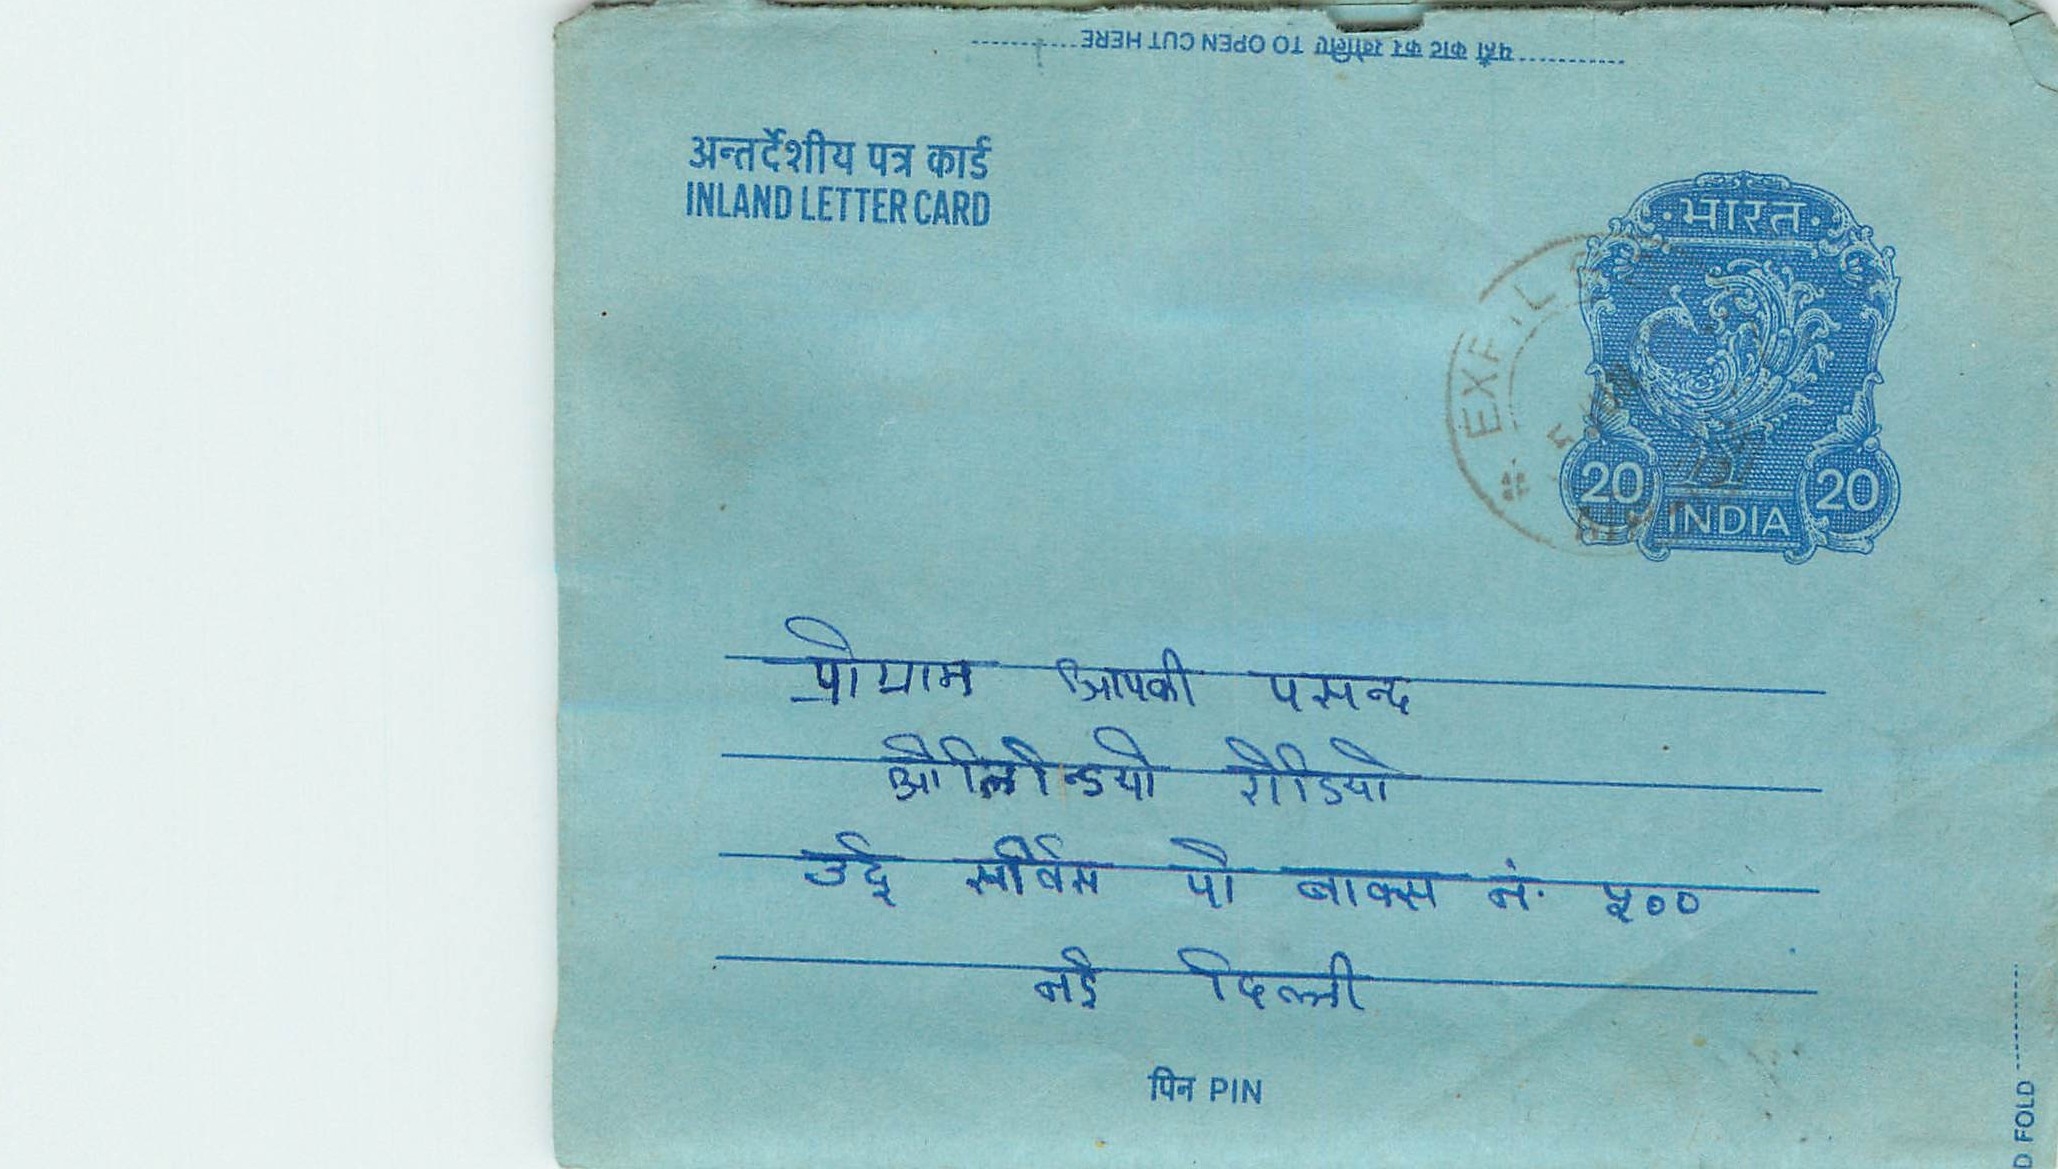 यहाँ काट कर खोलिए TO OPEN CUT HERE
अन्तर्देशीय पत्र कार्ड
INLAND LETTER CARD
भारत
20 20
INDIA
प्रोग्राम आपकी पसन्द
ऑलिन्डियो रेडियो
उर्दू सर्विस पो बाक्स नं. ५००
नई दिल्ली
पिन PIN
D FOLD